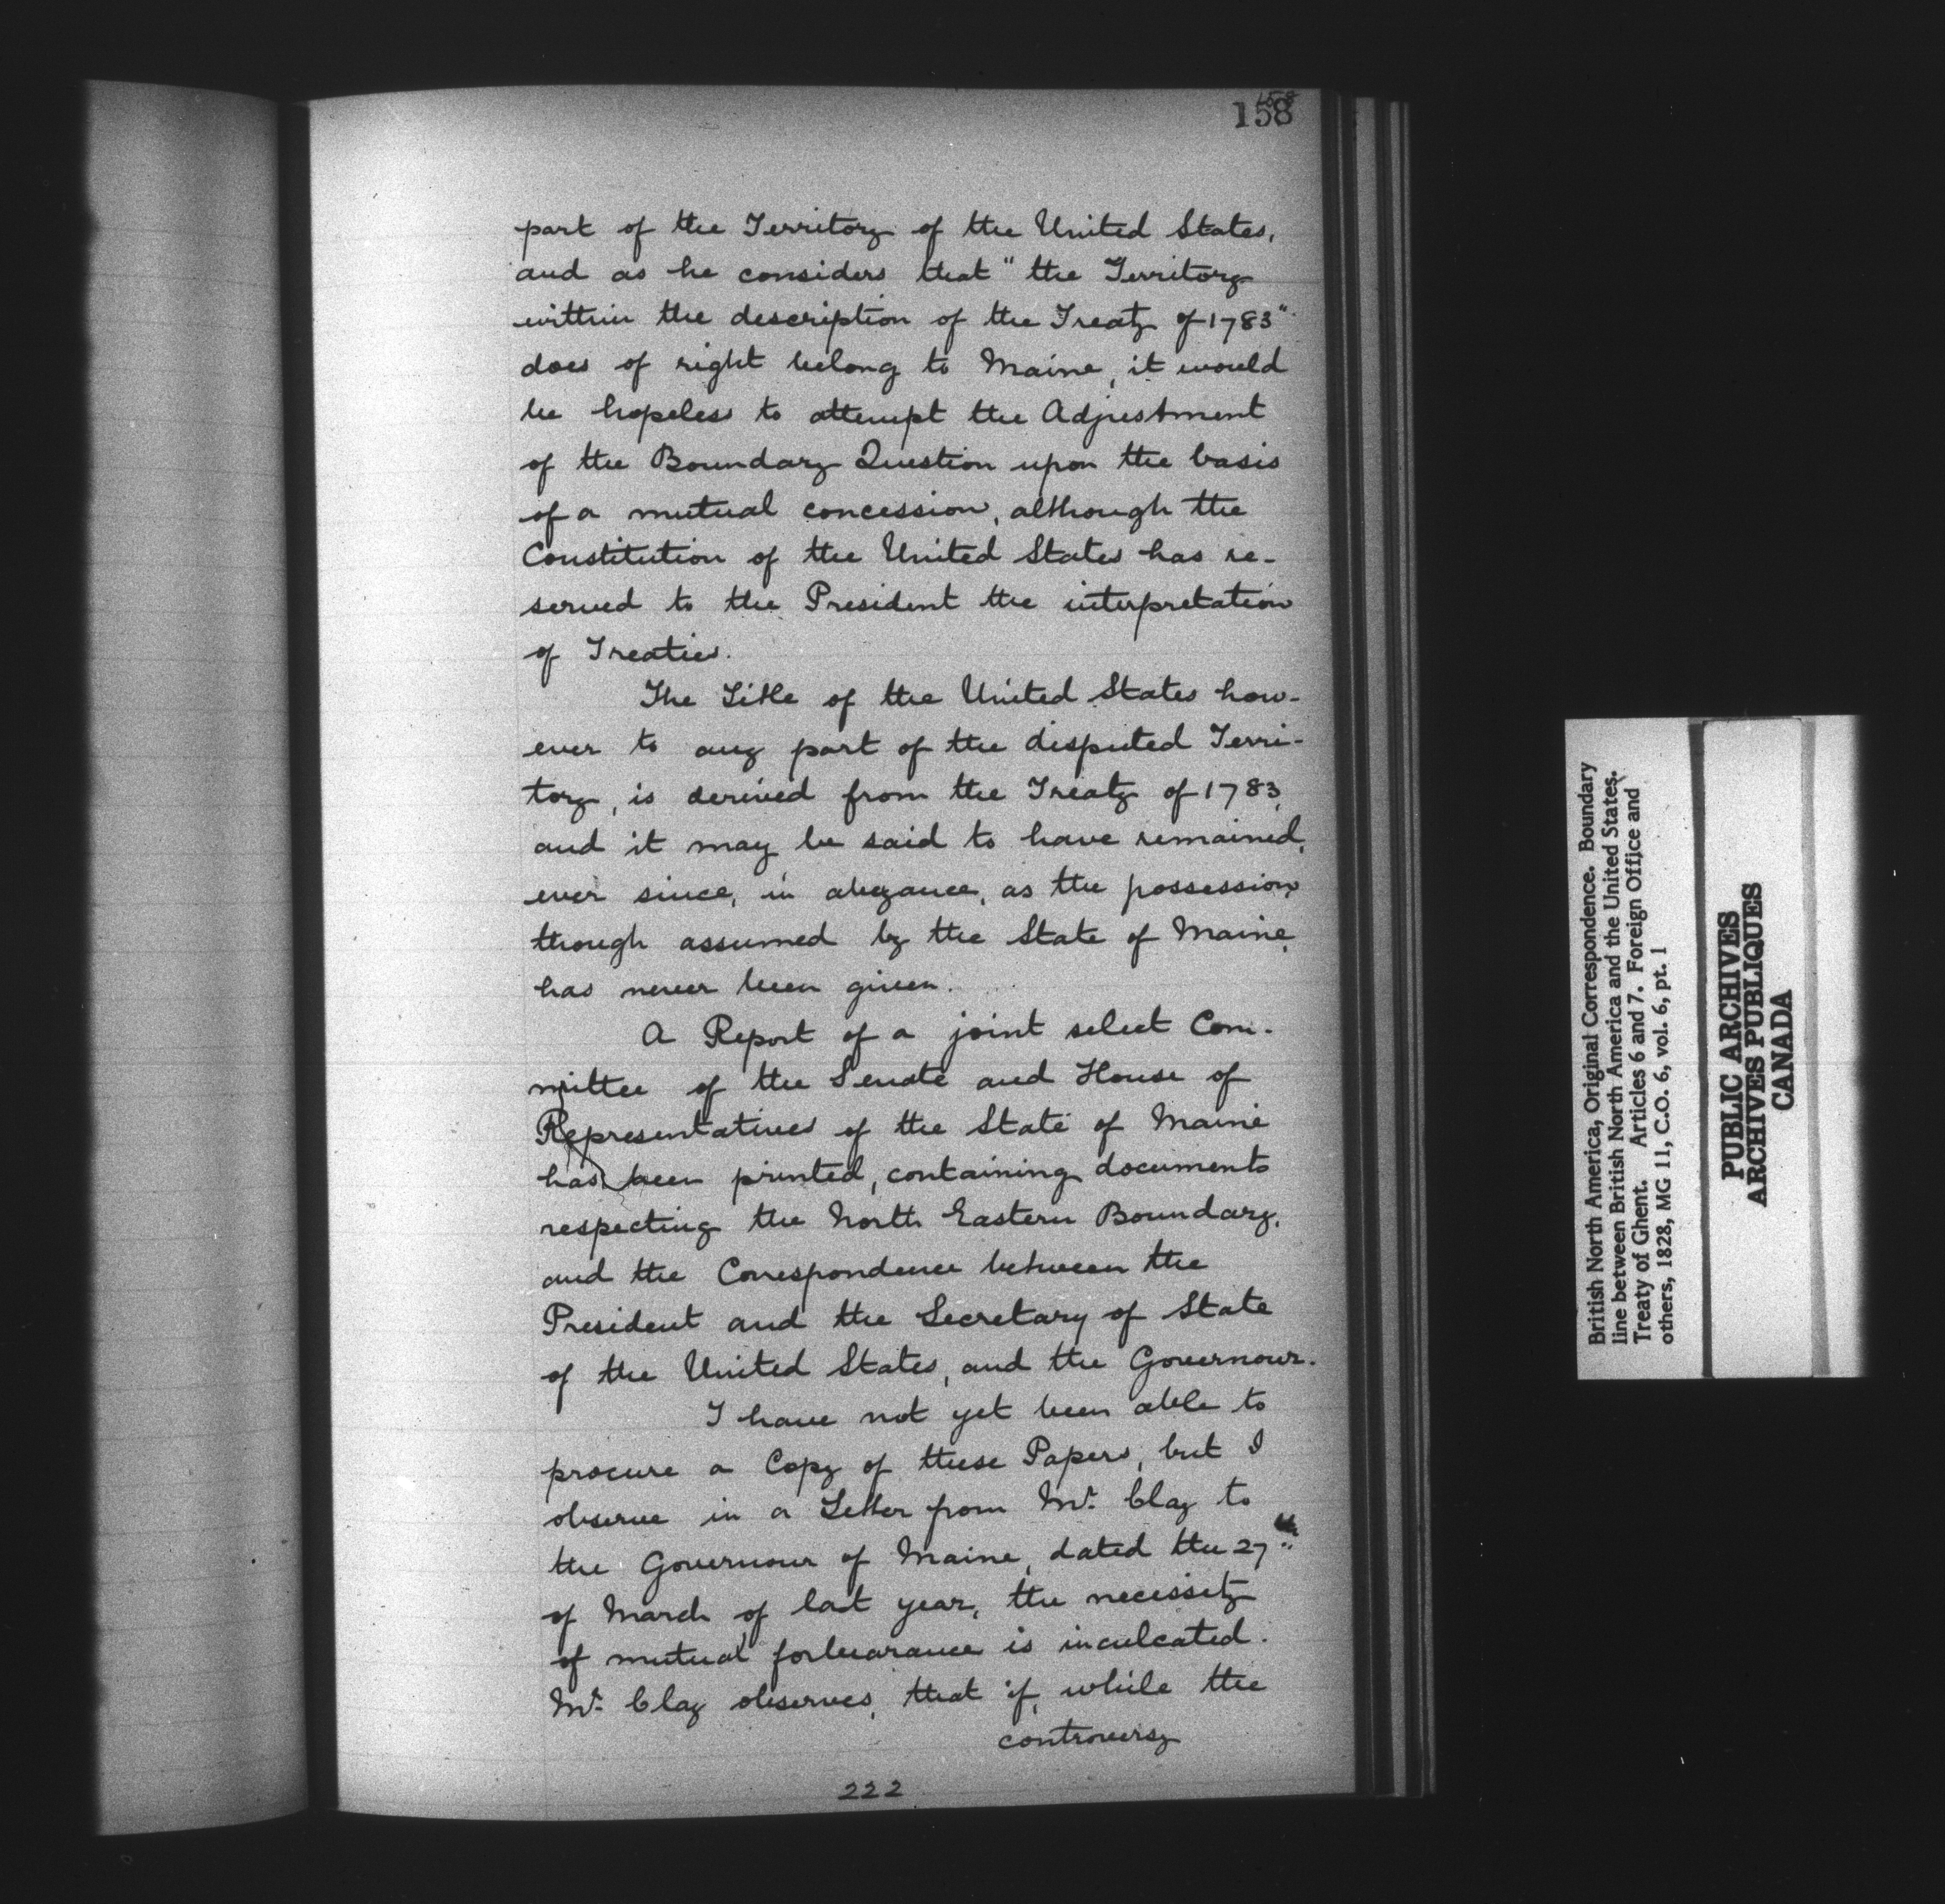 158
158
part of the Territory of the United States,
and as he considers that "the Territory
within the description of the Treaty of 1783"
does of right belong to Maine, it would
be hopeless to attempt the Adjustment
of the Boundary Question upon the basis
of a mutual concession, although the
Constitution of the United States has re-
served to the President the interpretation
of Treaties.
The Title of the United States how-
ever to any part of the disputed Terri-
tory, is derived from the Treaty of 1783,
and it may be said to have remained,
ever since, in abeyance, as the possession,
though assumed by the State of Maine,
has never been given.
A Report of a joint select Com-
mittee of the Senate and House of
Representatives of the State of Maine
has been printed, containing documents
respecting the North Eastern Boundary,
and the Correspondence between the
President and the Secretary of State
of the United States, and the Governour.
I have not yet been able to
procure a Copy of these Papers, but I
observe in a Letter from Mr. Clay to
the Governour of Maine, dated the 27th
of March of last year, the necessity
of mutual forbearance is inculcated.
Mr. Clay observes, that if, while the
controversy
222
British North America, Original Correspondence. Boundary
line between British North America and the United States.
Treaty of Ghent. Articles 6 and 7. Foreign Office and
others, 1828, MG 11, C.O. 6, vol. 6, pt. 1
PUBLIC ARCHIVES
ARCHIVES PUBLIQUES
CANADA